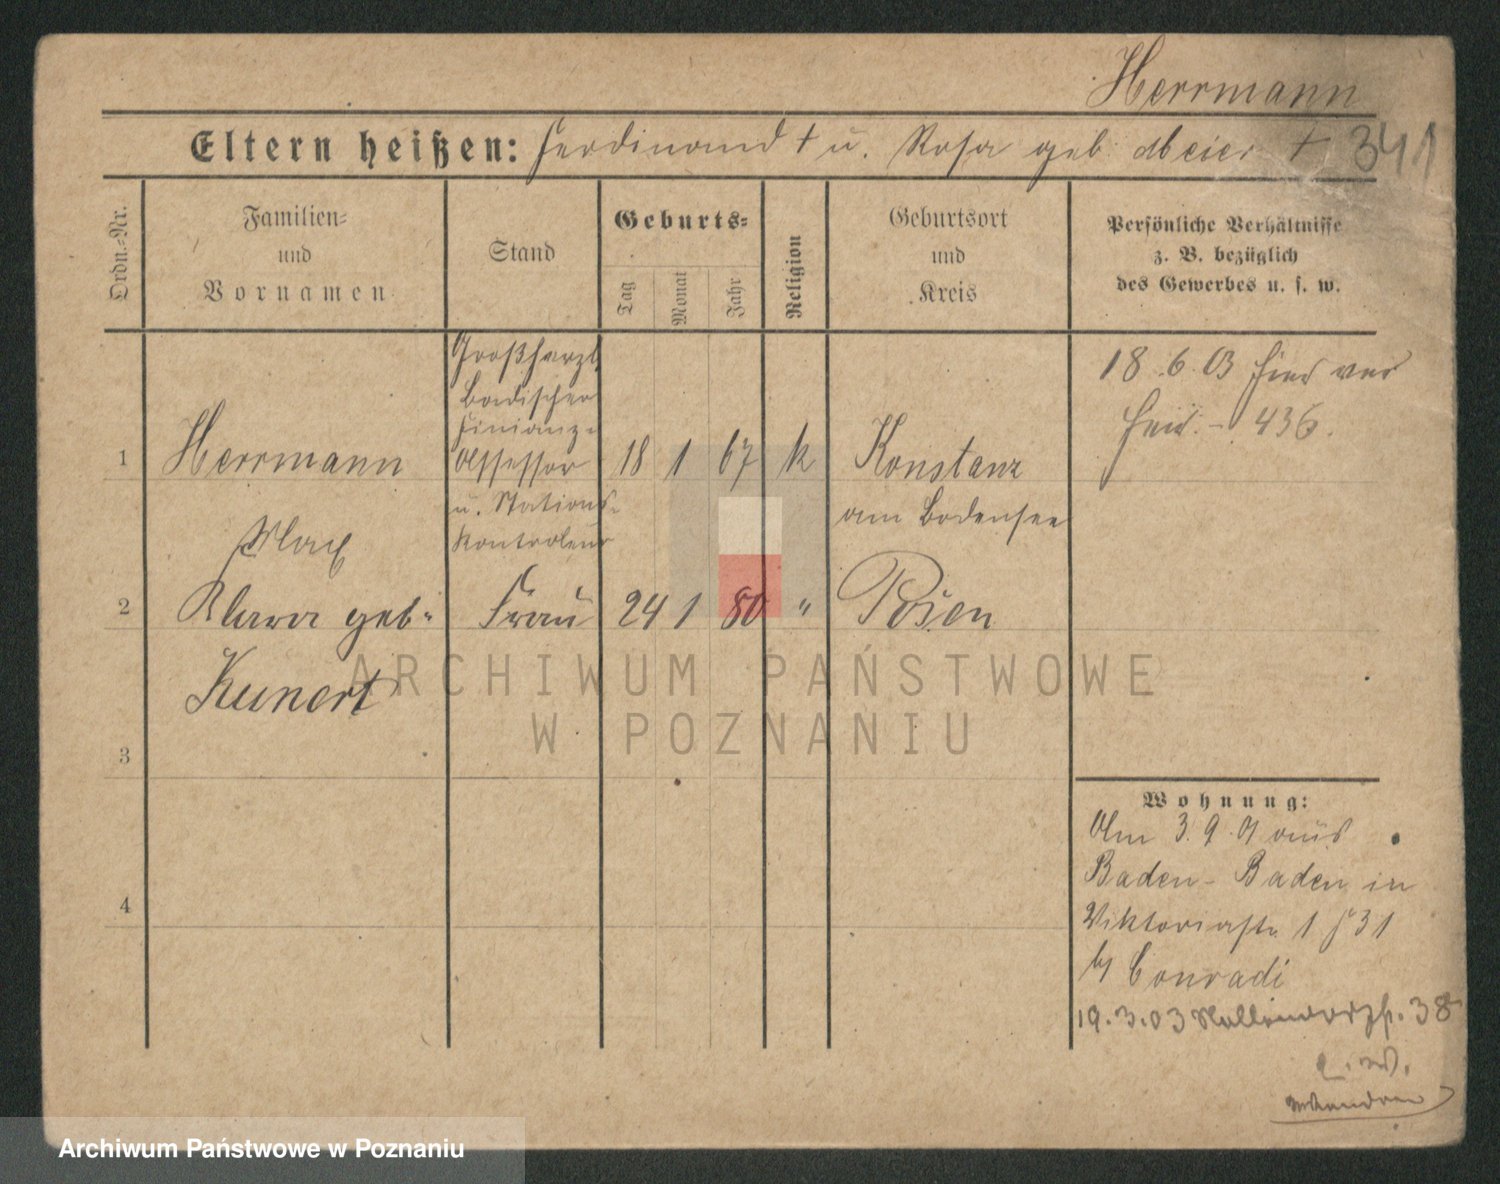 Herrmann
Eltern heißen: Ferdinand † u. Rosa geb. Meier † 341
Ordn.-Nr.
Familien-
und
Vornamen
Stand
Geburts-
Tag
Monat
Jahr
Religion
Geburtsort
und
Kreis
Persönliche Verhältnisse
z. B. bezüglich
des Gewerbes u. s. w.
Großherzl.
Badischer
Finanz-
1 Herrmann Assessor 18 1 67 k Konstanz
u. Stations- am Bodensee
Max Kontroleur
2 Klara geb. Frau 24 1 80 " Posen
Kunert
3
4
18.6.03 hier ver
heir. - 436.
Wohnung:
Am 3.9.01 aus
Baden-Baden in
Viktoriastr. 31
by Conradi
19.3.03 38
ARCHIWUM PAŃSTWOWE
W POZNANIU
Archiwum Państwowe w Poznaniu